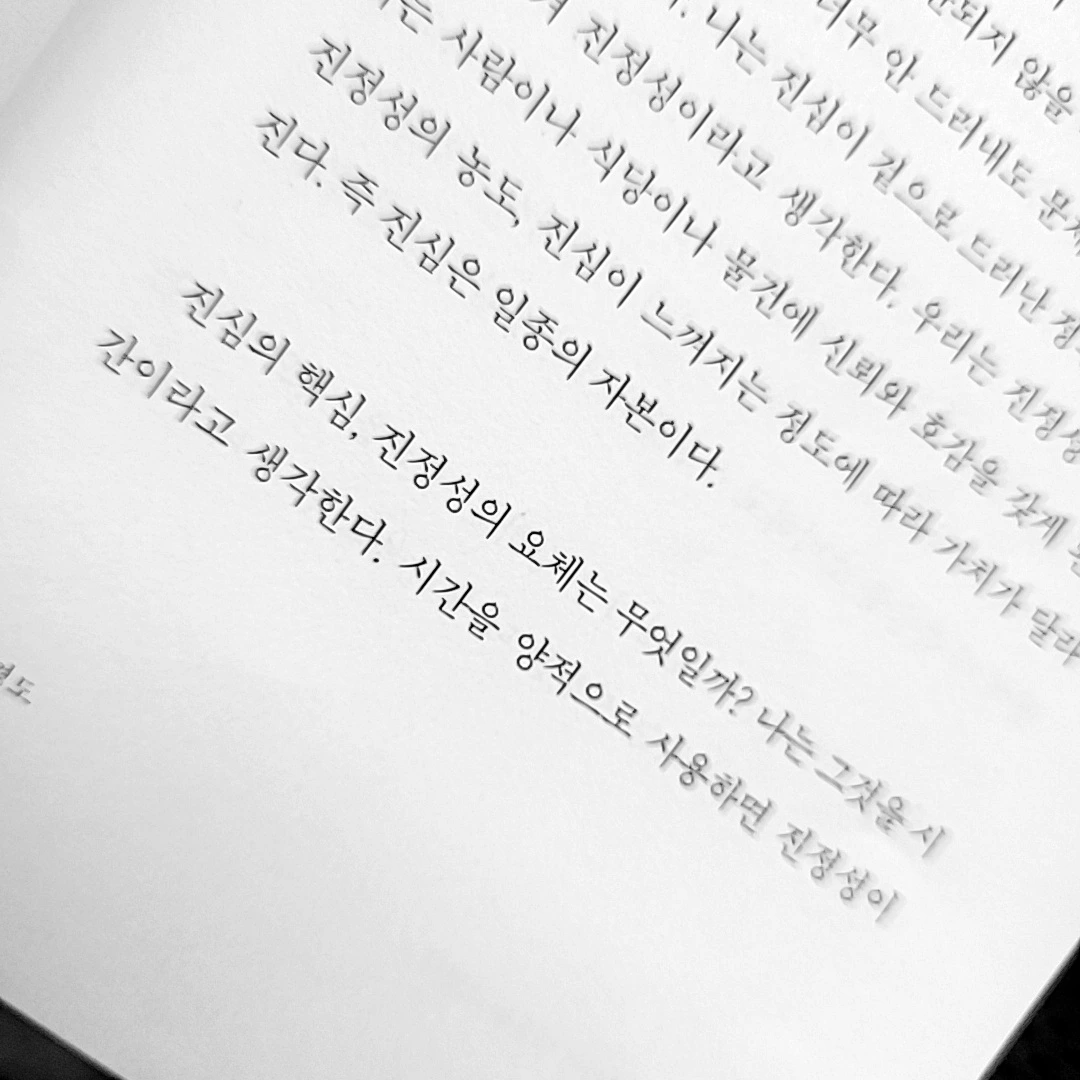 되지 않을
너무 안 드러내도 문제
나는 진심이 겉으로 드러난 정
진정성이라고 생각한다. 우리는 진정성
는 사람이나 식당이나 물건에 신뢰와 호감을 갖게
진정성의 농도, 진심이 느껴지는 정도에 따라 가치가 달라
진다. 즉 진심은 일종의 자본이다.
진심의 핵심, 진정성의 요체는 무엇일까? 나는 그것을 시
간이라고 생각한다. 시간을 양적으로 사용하면 진정성이